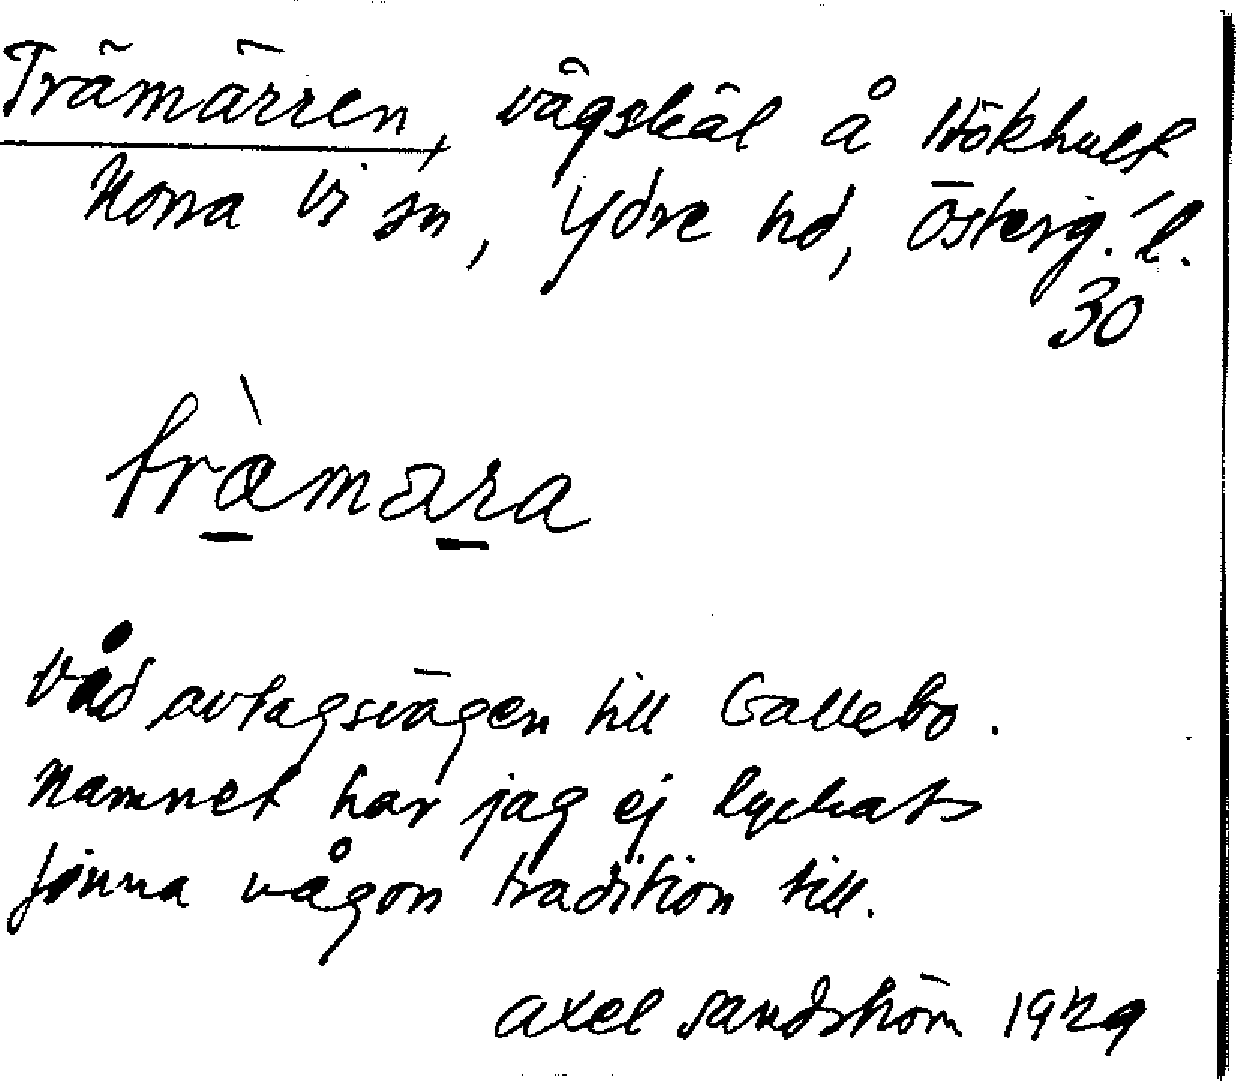 Trämärren, vägskäl å Hökhult
Norra Vi sn, Ydre hd, Österg. l.
30
træ̀mæra
Vid avtagsvägen till Gallebo.
Namnet har jag ej lyckats
finna någon tradition till.
Axel Sandström 1929